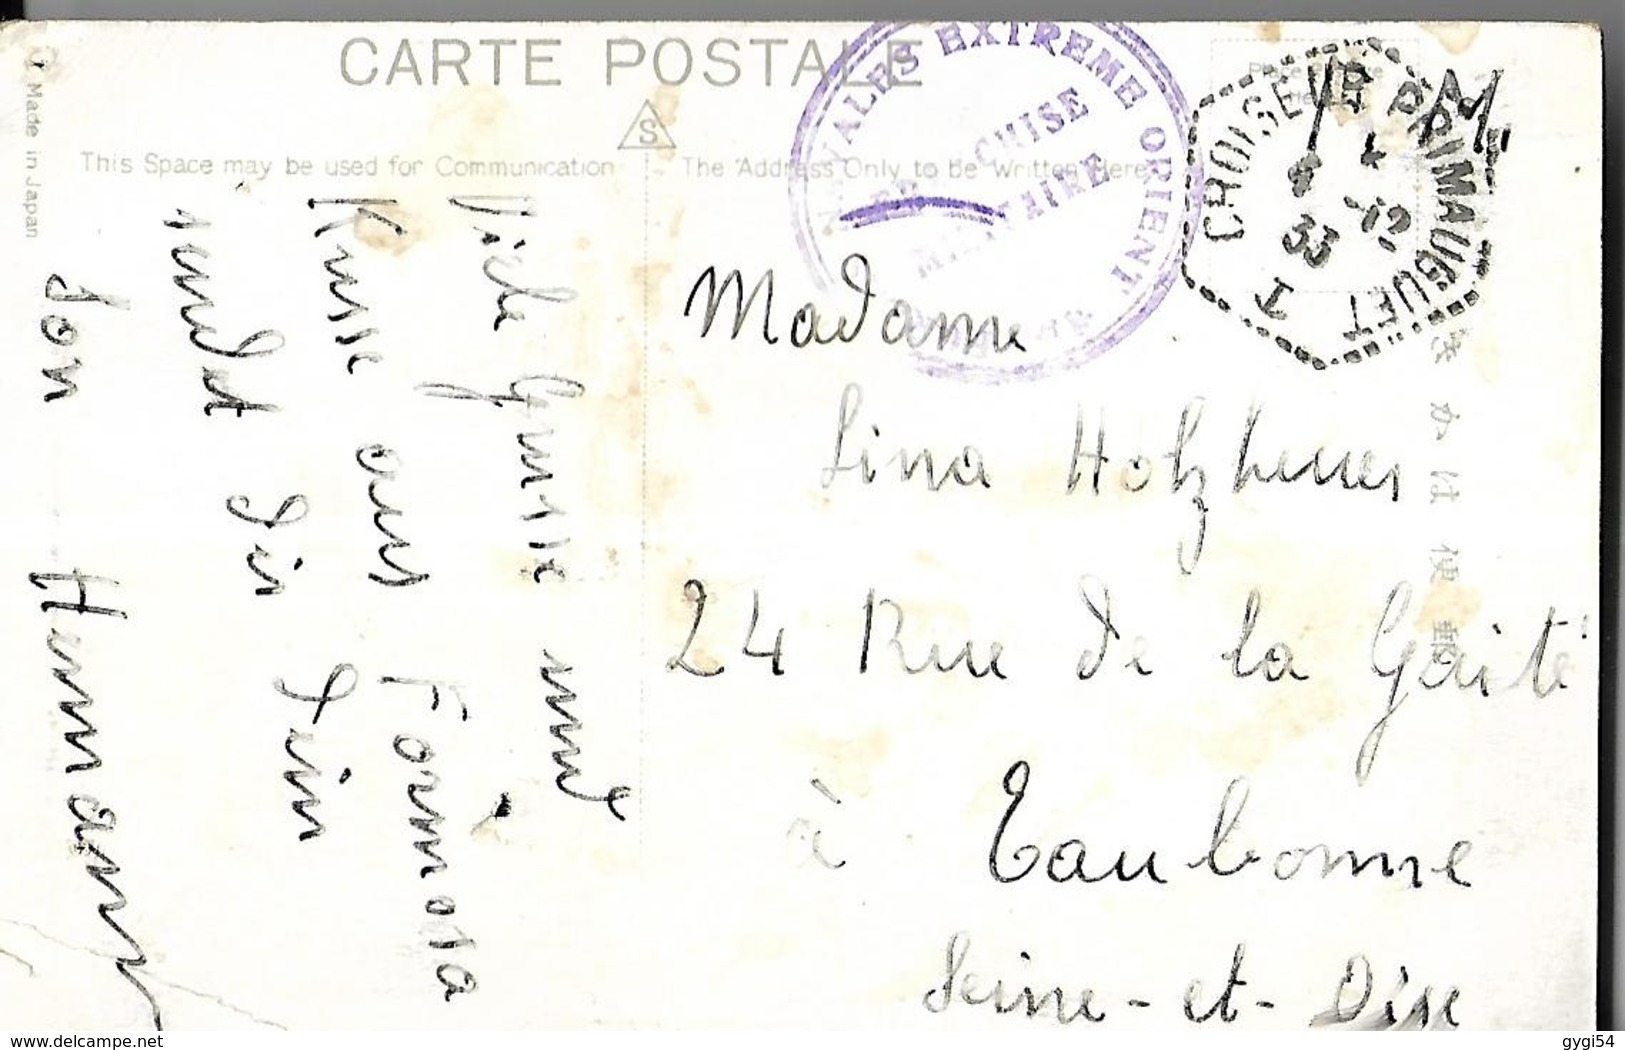 CARTE POSTALE
S
Made in Japan
This Space may be used for Communication
The Address Only to be Written Here
NAVALES EXTREME ORIENT
FRANCHISE
MILITAIRE
CROISEUR PRIMAUGUET
4
12
33
Viele Grüsse und
Küsse aus Formosa
sendet dir dein
Son Hermann
Madame
Lina Holzheuer
24 Rue de la Gaité
à Eaubonne
Seine-et-Oise
きかは便郵
gygi54